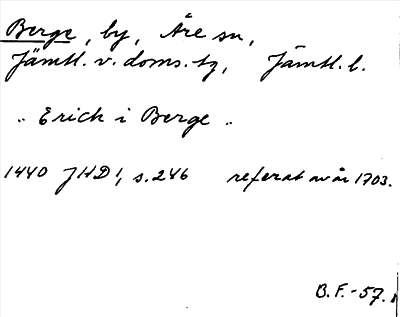 Berge, by, Åre sn,
Jämtl. v. doms. tg, Jämtl. l.
„ Erich i Berge „
1440 JHD 1, s. 246 referat av år 1703.
B.F.-57.